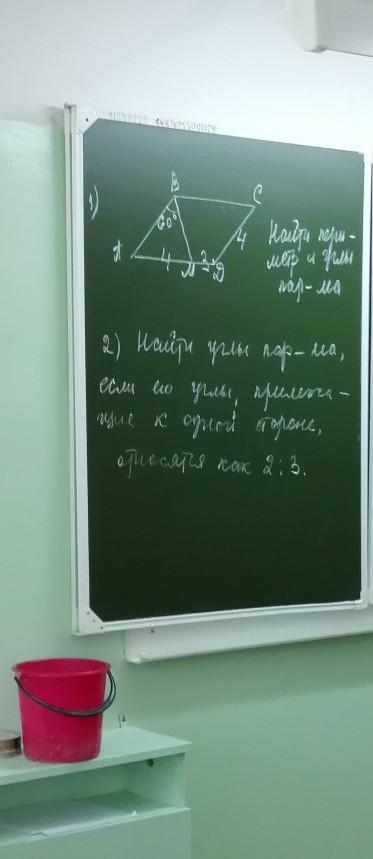 1)
B
C
60°
A
4
M
2
D
4
Найти пери-
метр и углы
пар-ма
2) Найти углы пар-ма,
если его углы, прилежа-
щие к одной стороне,
относятся как 2:3.